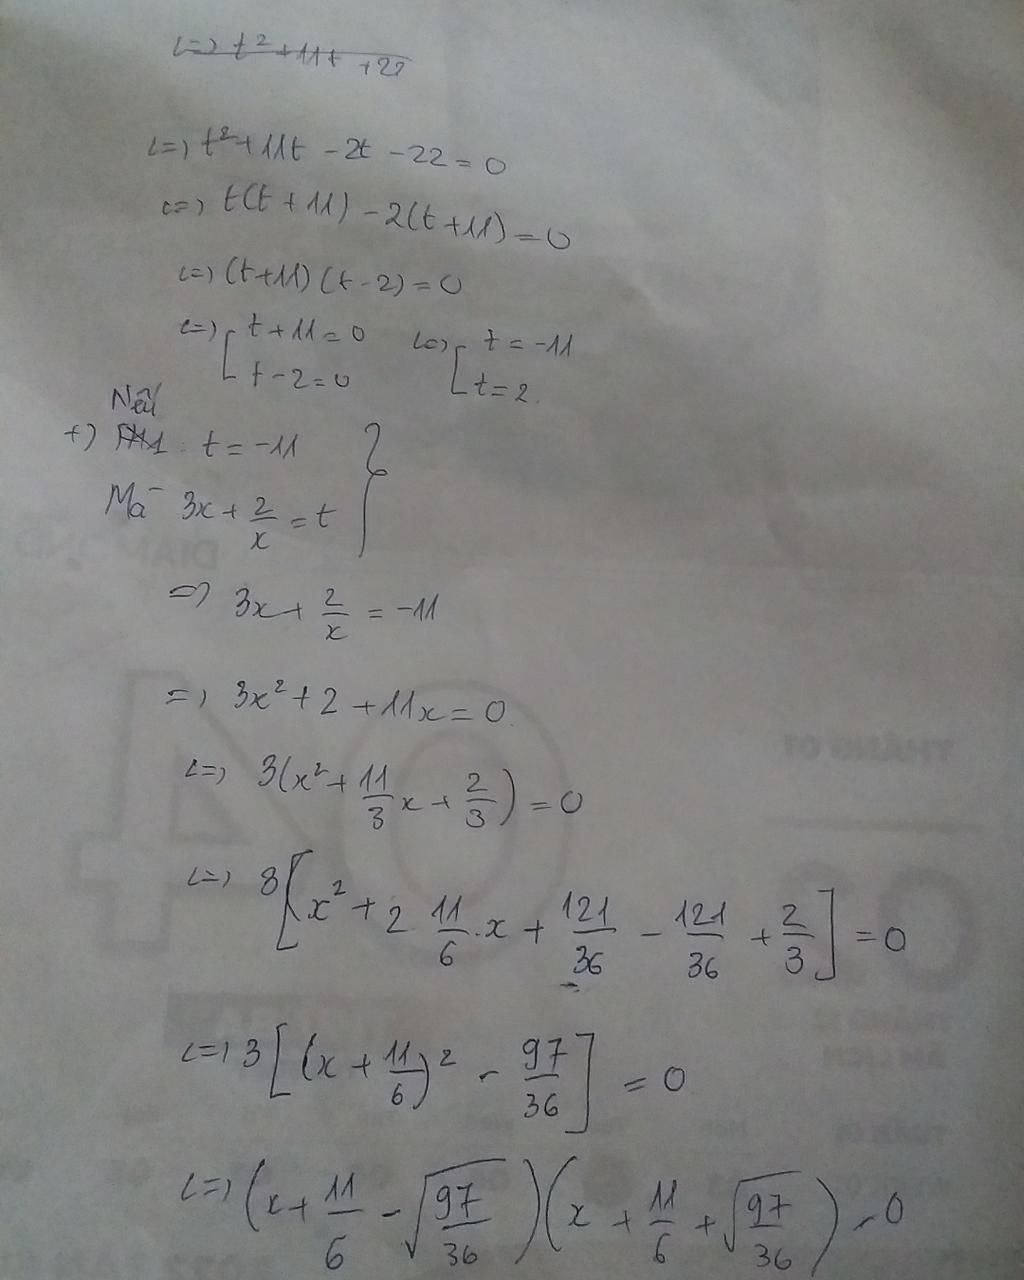 <=> t² + 11t + 22
<=> t² + 11t - 2t - 22 = 0
<=> t(t + 11) - 2(t + 11) = 0
<=> (t + 11)(t - 2) = 0
<=> [ t + 11 = 0 <=> [ t = -11
t - 2 = 0 t = 2.
Nếu
+) t = -11 }
Mà 3x + 2/x = t
=> 3x + 2/x = -11
=> 3x² + 2 + 11x = 0.
<=> 3(x² + 11/3 x + 2/3) = 0
<=> 3[x² + 2. 11/6 .x + 121/36 - 121/36 + 2/3] = 0
<=> 3[(x + 11/6)² - 97/36] = 0
<=> (x + 11/6 - √97/36)(x + 11/6 + √97/36) = 0